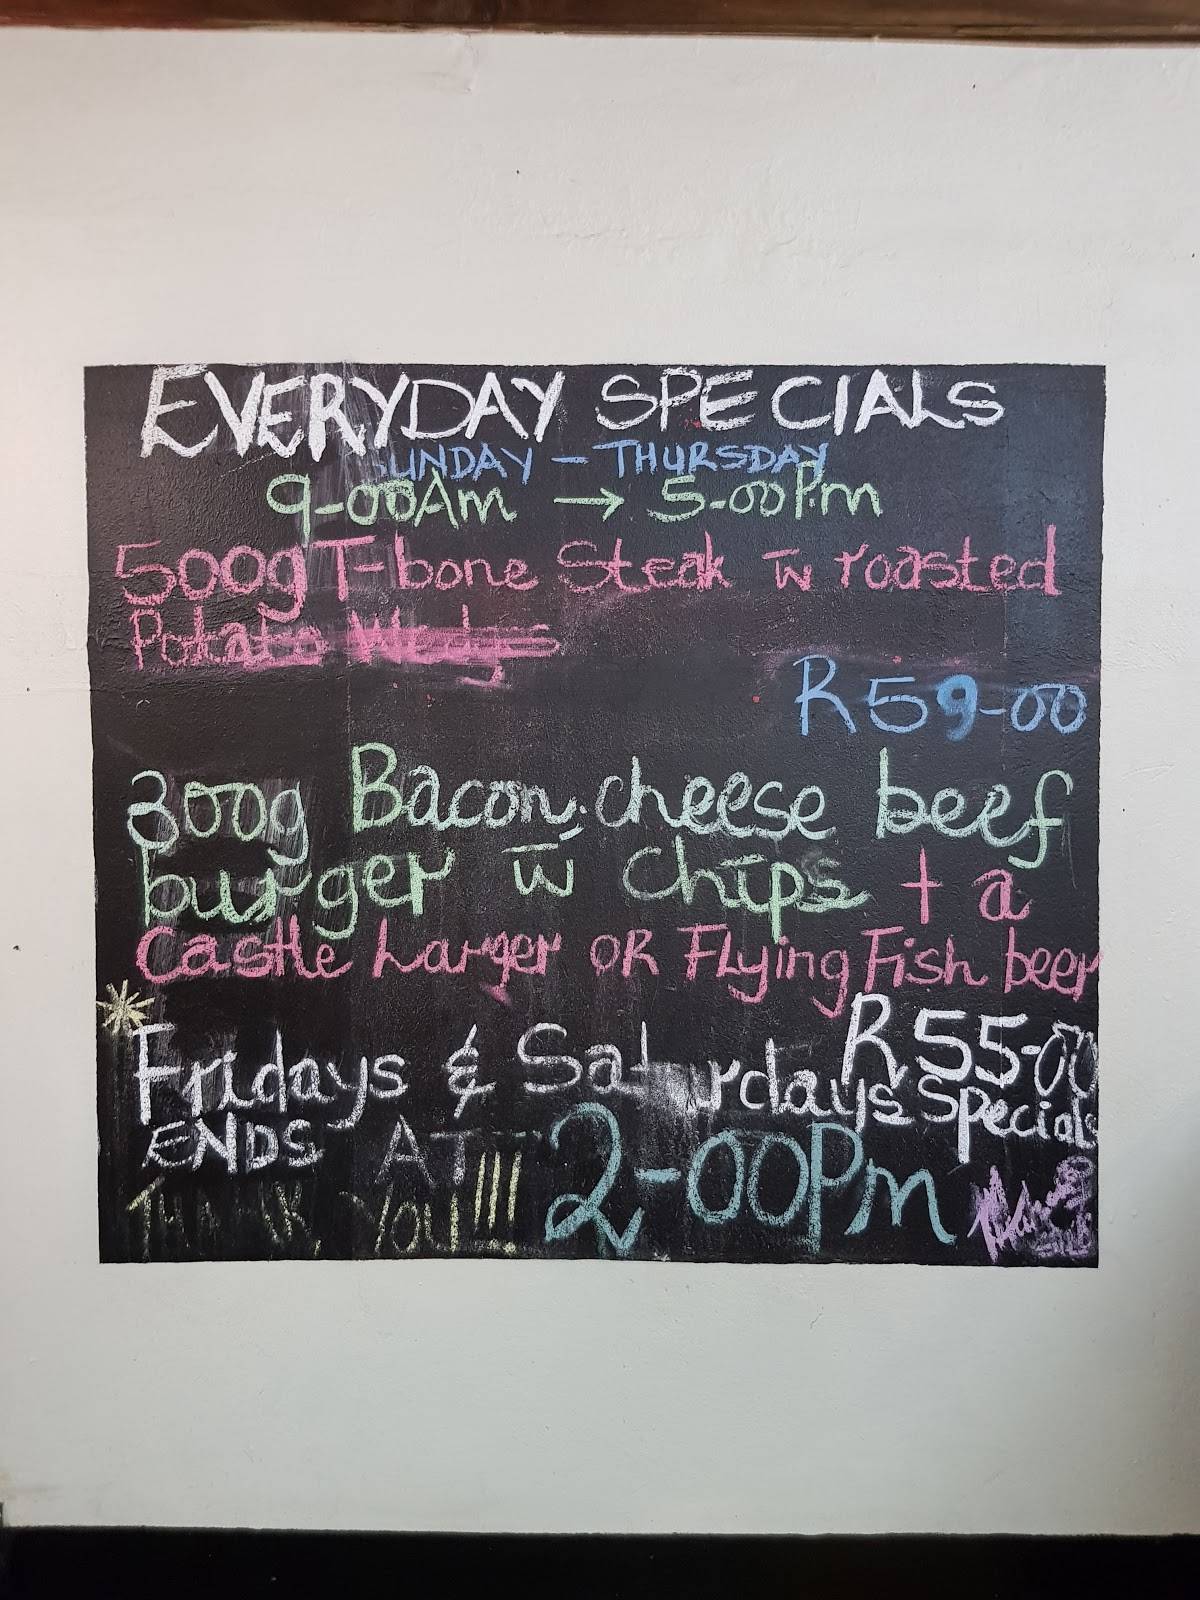 EVERYDAY SPECIALS
SUNDAY - THURSDAY
9-00Am → 5-00Pm
500g T-bone Steak w roasted
Potato
R59-00
300g Bacon. cheese beef
burger w chips + a
Castle Larger OR Flying Fish beer
R55-00
Fridays & Saturdays specials
ENDS AT 2-00Pm
THANK YOU!!!